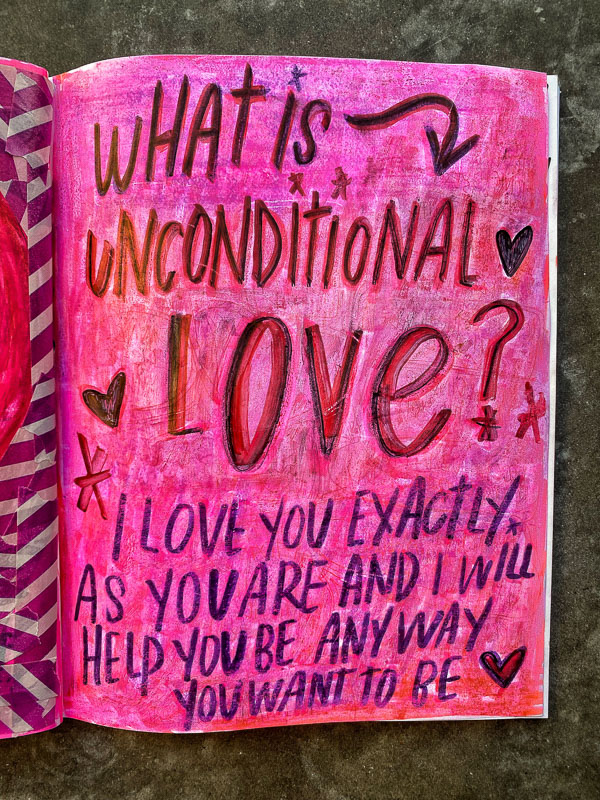 WHAT IS
UNCONDITIONAL
LOVE?
I LOVE YOU EXACTLY
AS YOU ARE AND I WILL
HELP YOU BE ANY WAY
YOU WANT TO BE